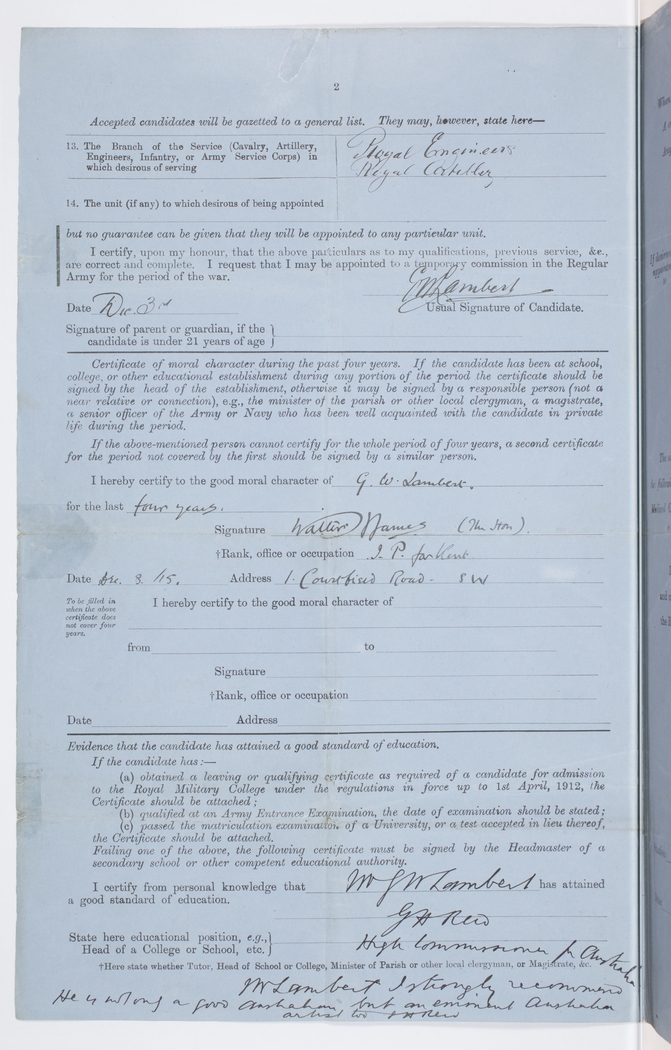 2
Accepted candidates will be gazetted to a general list. They may, however, state here—
13. The Branch of the Service (Cavalry, Artillery,
Engineers, Infantry, or Army Service Corps) in
which desirous of serving
Royal Engineers
Royal Artillery
14. The unit (if any) to which desirous of being appointed
but no guarantee can be given that they will be appointed to any particular unit.
I certify, upon my honour, that the above particulars as to my qualifications, previous service, &c.,
are correct and complete. I request that I may be appointed to a temporary commission in the Regular
Army for the period of the war.
GWLambert
Date Dec. 3rd Usual Signature of Candidate.
Signature of parent or guardian, if the
candidate is under 21 years of age
Certificate of moral character during the past four years. If the candidate has been at school,
college, or other educational establishment during any portion of the period the certificate should be
signed by the head of the establishment, otherwise it may be signed by a responsible person (not a
near relative or connection), e.g., the minister of the parish or other local clergyman, a magistrate,
a senior officer of the Army or Navy who has been well acquainted with the candidate in private
life during the period.
If the above-mentioned person cannot certify for the whole period of four years, a second certificate
for the period not covered by the first should be signed by a similar person.
I hereby certify to the good moral character of G. W. Lambert.
for the last four years.
Signature Walter James (The Hon).
†Rank, office or occupation J. P. for Kent
Date Dec. 3. /15. Address 1. Courtfield Road - SW
To be filled in
when the above
certificate does
not cover four
years.
I hereby certify to the good moral character of
from to
Signature
†Rank, office or occupation
Date Address
Evidence that the candidate has attained a good standard of education.
If the candidate has:—
(a) obtained a leaving or qualifying certificate as required of a candidate for admission
to the Royal Military College under the regulations in force up to 1st April, 1912, the
Certificate should be attached;
(b) qualified at an Army Entrance Examination, the date of examination should be stated;
(c) passed the matriculation examination of a University, or a test accepted in lieu thereof,
the Certificate should be attached.
Failing one of the above, the following certificate must be signed by the Headmaster of a
secondary school or other competent educational authority.
I certify from personal knowledge that Mr G W Lambert has attained
a good standard of education.
G H Reid
State here educational position, e.g.,
Head of a College or School, etc.
High Commissioner for Australia
†Here state whether Tutor, Head of School or College, Minister of Parish or other local clergyman, or Magistrate, &c.
Mr Lambert I strongly recommend
He is not only a good Australian but an eminent Australian
artist too GHReid